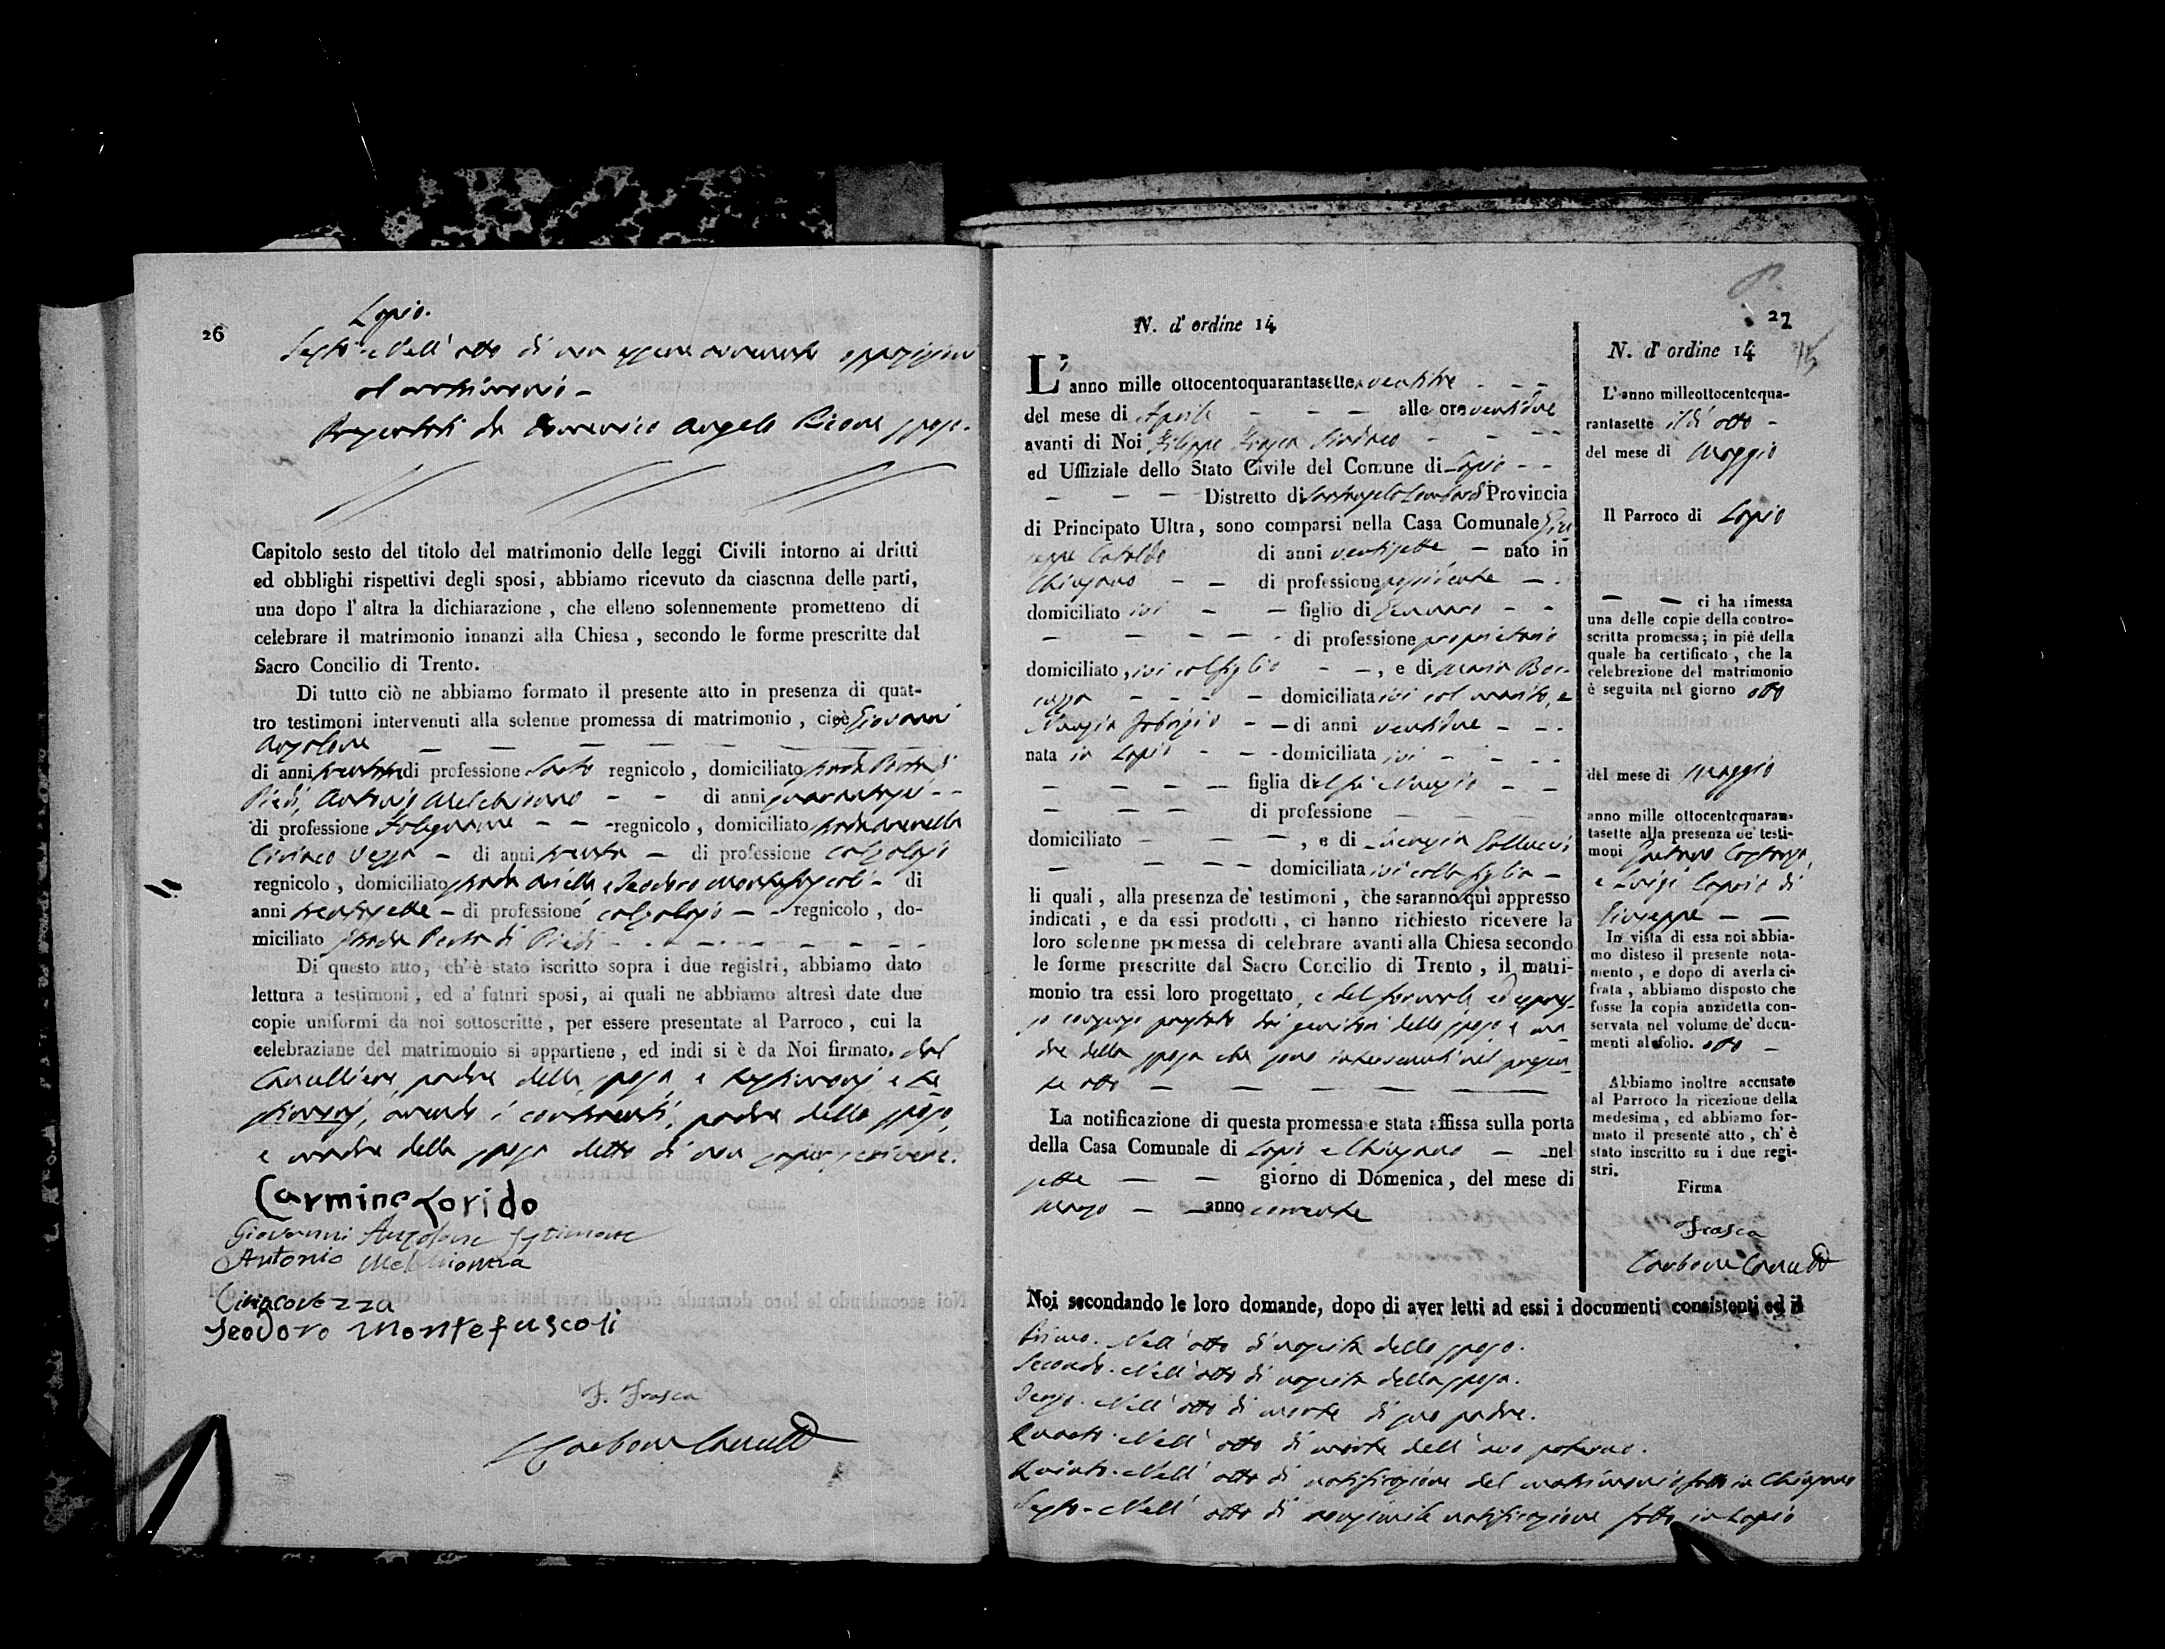 26
Lapio.
Sesto = Nell' atto di non essere avvenute opposizioni
al matrimonio -
Presentati da Domenico Angelo sposo.
Capitolo sesto del titolo del matrimonio delle leggi Civili intorno ai dritti
ed obblighi rispettivi degli sposi, abbiamo ricevuto da ciascnna delle parti,
una dopo l' altra la dichiarazione, che elleno solennemente prometteno di
celebrare il matrimonio innanzi alla Chiesa, secondo le forme prescritte dal
Sacro Concilio di Trento.
Di tutto ciò ne abbiamo formato il presente atto in presenza di quat-
tro testimoni intervenuti alla solenne promessa di matrimonio, cioè Giovanni
Anzolone
di anni di professione Sarto regnicolo, domiciliato strada Porta di
Piedi, Antonio Melchionno di anni
di professione Falegname regnicolo, domiciliato strada
Ciriaco Vezza - di anni trenta - di professione calzolajo
regnicolo, domiciliato strada e Teodoro Montefuscoli - di
anni trentasette - di professione calzolajo - regnicolo, do-
miciliato strada Porta di Piedi
Di questo atto, ch' è stato iscritto sopra i due registri, abbiamo dato
lettura a testimoni, ed a' futuri sposi, ai quali ne abbiamo altresì date due
copie uniformi da noi sottoscritte, per essere presentate al Parroco, cui la
celebraziane del matrimonio si appartiene, ed indi si è da Noi firmato, dal
Cancelliere, padre della sposa, e testimonj, e te
stimonj, avendo i contraenti, padre dello sposo,
e madre della sposa detto di non saper scrivere.
Carmine Lorido
Giovanni Anzolone testimone
Antonio Melchionna
Ciriaco Vezza
Teodoro Montefuscoli
F. Frasca
Carbone Cancell
N. d' ordine 14
L' anno mille ottocentoquarantasette, ventitre
del mese di Aprile alle ore ventidue
avanti di Noi Filippo Frasca Sindaco
ed Uffiziale dello Stato Civile del Comune di Lapio
Distretto di Santangelo Lombardi Provincia
di Principato Ultra, sono comparsi nella Casa Comunale Giu
seppe Cataldo di anni ventisette - nato in
Chiusano di professione
domiciliato ivi figlio di Gennaro
di professione proprietario
domiciliato, ivi col figlio, e di Maria Boc-
cuzzo domiciliata ivi col marito, e
Nunzia Fabrizio di anni ventidue
nata in Lapio domiciliata ivi
figlia del fu Nunzio
di professione
domiciliato, e di
domiciliata ivi colla figlia -
li quali, alla presenza de' testimoni, che saranno quì appresso
indicati, e da essi prodotti, ci hanno richiesto ricevere la
loro solenne promessa di celebrare avanti alla Chiesa secondo
le forme prescritte dal Sacro Concilio di Trento, il matri-
monio tra essi loro progettato, e del formale ed espres-
so consenso prestato dai genitori dello sposo, e ma
dre della sposa che sono intervenuti nel presen-
te atto
La notificazione di questa promessa e stata affissa sulla porta
della Casa Comunale di Lapio e Chiusano nel
sette giorno di Domenica, del mese di
Marzo anno corrente
Noi secondando le loro domande, dopo di aver letti ad essi i documenti consistenti ed il
Primo. Nell' atto di nascita dello sposo.
Secondo. Nell' atto di nascita della sposa.
Terzo. Nell' atto di morte di suo padre.
Quarto. Nell' atto di morte dell' avo paterno.
Quinto. Nell' atto di notificazione del matrimonio fatto in Chiusano
Sesto. Nell' atto di consimile notificazione fatta in Lapio
27
N. d' ordine 14
L' anno milleottocentoqua-
rantasette il dì otto -
del mese di Maggio
Il Parroco di Lapio
ci ha rimessa
una delle copie della contro-
scritta promessa; in piè della
quale ha certificato, che la
celebrezione del matrimonio
è seguita nel giorno otto
del mese di Maggio
anno mille ottocentoquaran-
tasette alla presenza de' testi-
moni Gaetano
e Luigi Caprio di
Giuseppe
In vista di essa noi abbia-
mo disteso il presente nota-
mento, e dopo di averla ci-
frata, abbiamo disposto che
fosse la copia anzidetta con-
servata nel volume de' docu-
menti al folio. otto
Abbiamo inoltre accusato
al Parroco la ricezione della
medesima, ed abbiamo for-
mato il presente atto, ch' è
stato inscritto su i due regi-
stri.
Firma
Frasca
Carbone Cancell